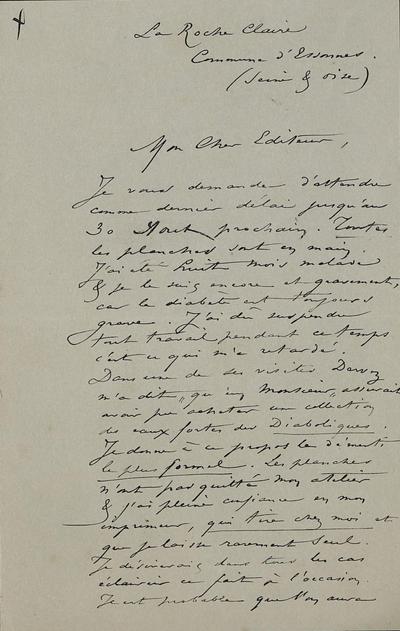 La Roche Claire
Commune d'Essonnes.
(Seine & Oise)
Mon Cher Editeur,
Je vous demande d'attendre
comme dernier délai jusqu'au
30 Aout prochain. Toutes
les planches sont en main.
J'ai été huit mois malade
& je le suis encore et gravement,
car le diabète est toujours
grave. J'ai dû suspendre
tout travail pendant ce temps
c'est ce qui m'a retardé.
Dans une de ses visites
m'a dit "qu'un Monsieur" assurait
avoir pu acheter une collection
des eaux fortes des Diaboliques.
Je donne à ce propos le démenti
le plus formel. Les planches
n'ont pas quitté mon atelier
& j'ai pleine confiance en mon
imprimeur, qui tire chez moi et
que je laisse rarement seul.
Je désirerais dans tous les cas
éclaircir ce fait à l'occasion.
Il est probable que l'on aura